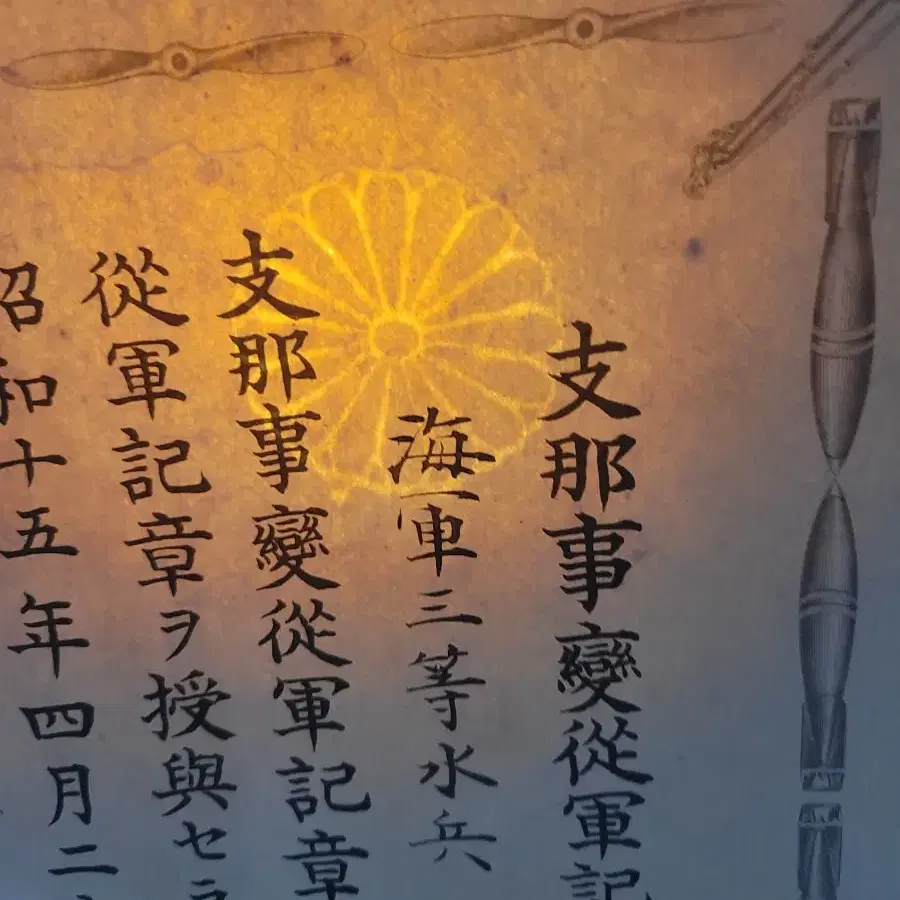 支那事變從軍記
海軍三等水兵
支那事變從軍記章
從軍記章ヲ授與セラ
昭和十五年四月二